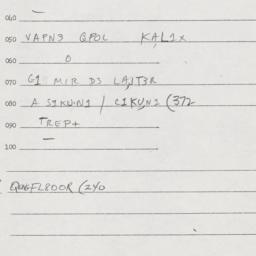 040 —
050 VAPN3 QPOL KALIX
060 0
070 G1 MIR DS LAJT3R
080 A SIKUNI / CIKUNI (372
090 TREP+
100 —
QUGFL800R (240